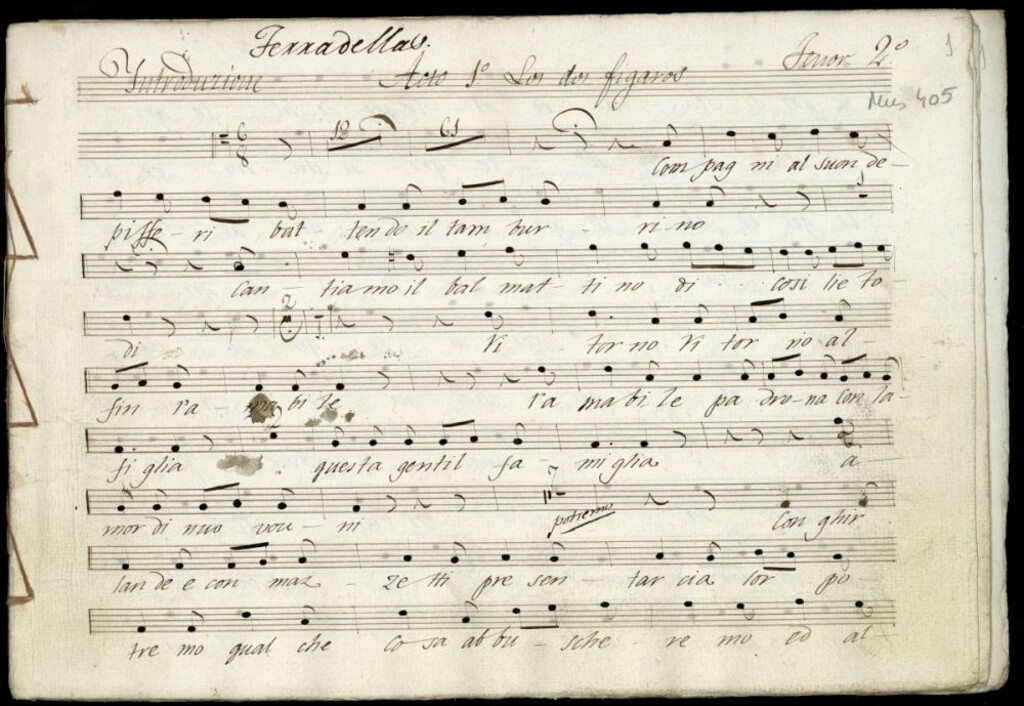 Ferradellas.
Introduzione Acto 1º Los dos figaros Tenor 2º
1
Mus 405
6
8 12 61
Com pag ni al suon de-
piffe-ri bat tendo il tam bur - ri-no
Can-tiamo il bal mat-ti no di cosi lie to-
2
di Vi tor no Vi tor no al-
fin ra-ma bi le ra ma bi le pa dro-na con la-
2
fi glia questa gentil fa-mi glia a
7
mor di nuo vou-ni potremo Con ghir
lan de e con maz-ze tti pre sen-tar cia lor po
tre mo qual che co sa ab bu-sche re mo ed al-